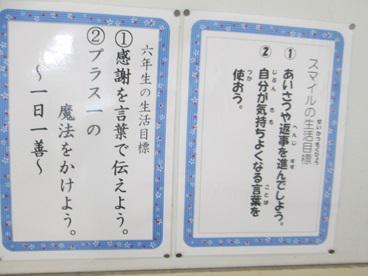 スマイルの生活目標
① あいさつや返事を進んでしよう。
② 自分が気持ちよくなる言葉を
使おう。
六年生の生活目標
①感謝を言葉で伝えよう。
②プラス一の
魔法をかけよう。
～一日一善～